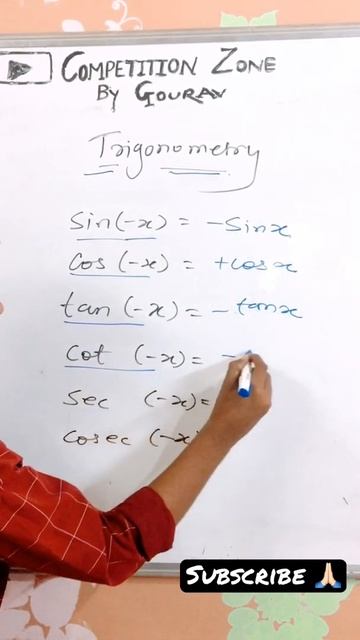 COMPETITION ZONE
BY GOURAV
Trigonometry
Sin(-x) = -Sinx
Cos (-x) = +Cosx
tan (-x) = - tanx
Cot (-x) = -
Sec (-x) =
Cosec (-x)
SUBSCRIBE 🙏🏻